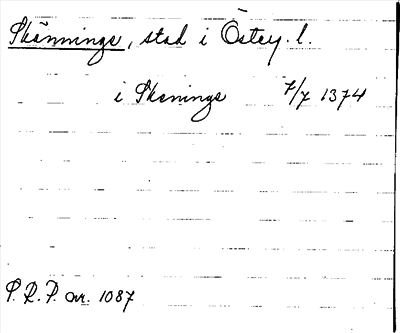 Skänninge, stad i Östeg. l.
i Skenings 7/7 1374
P.R.P. nr. 1087